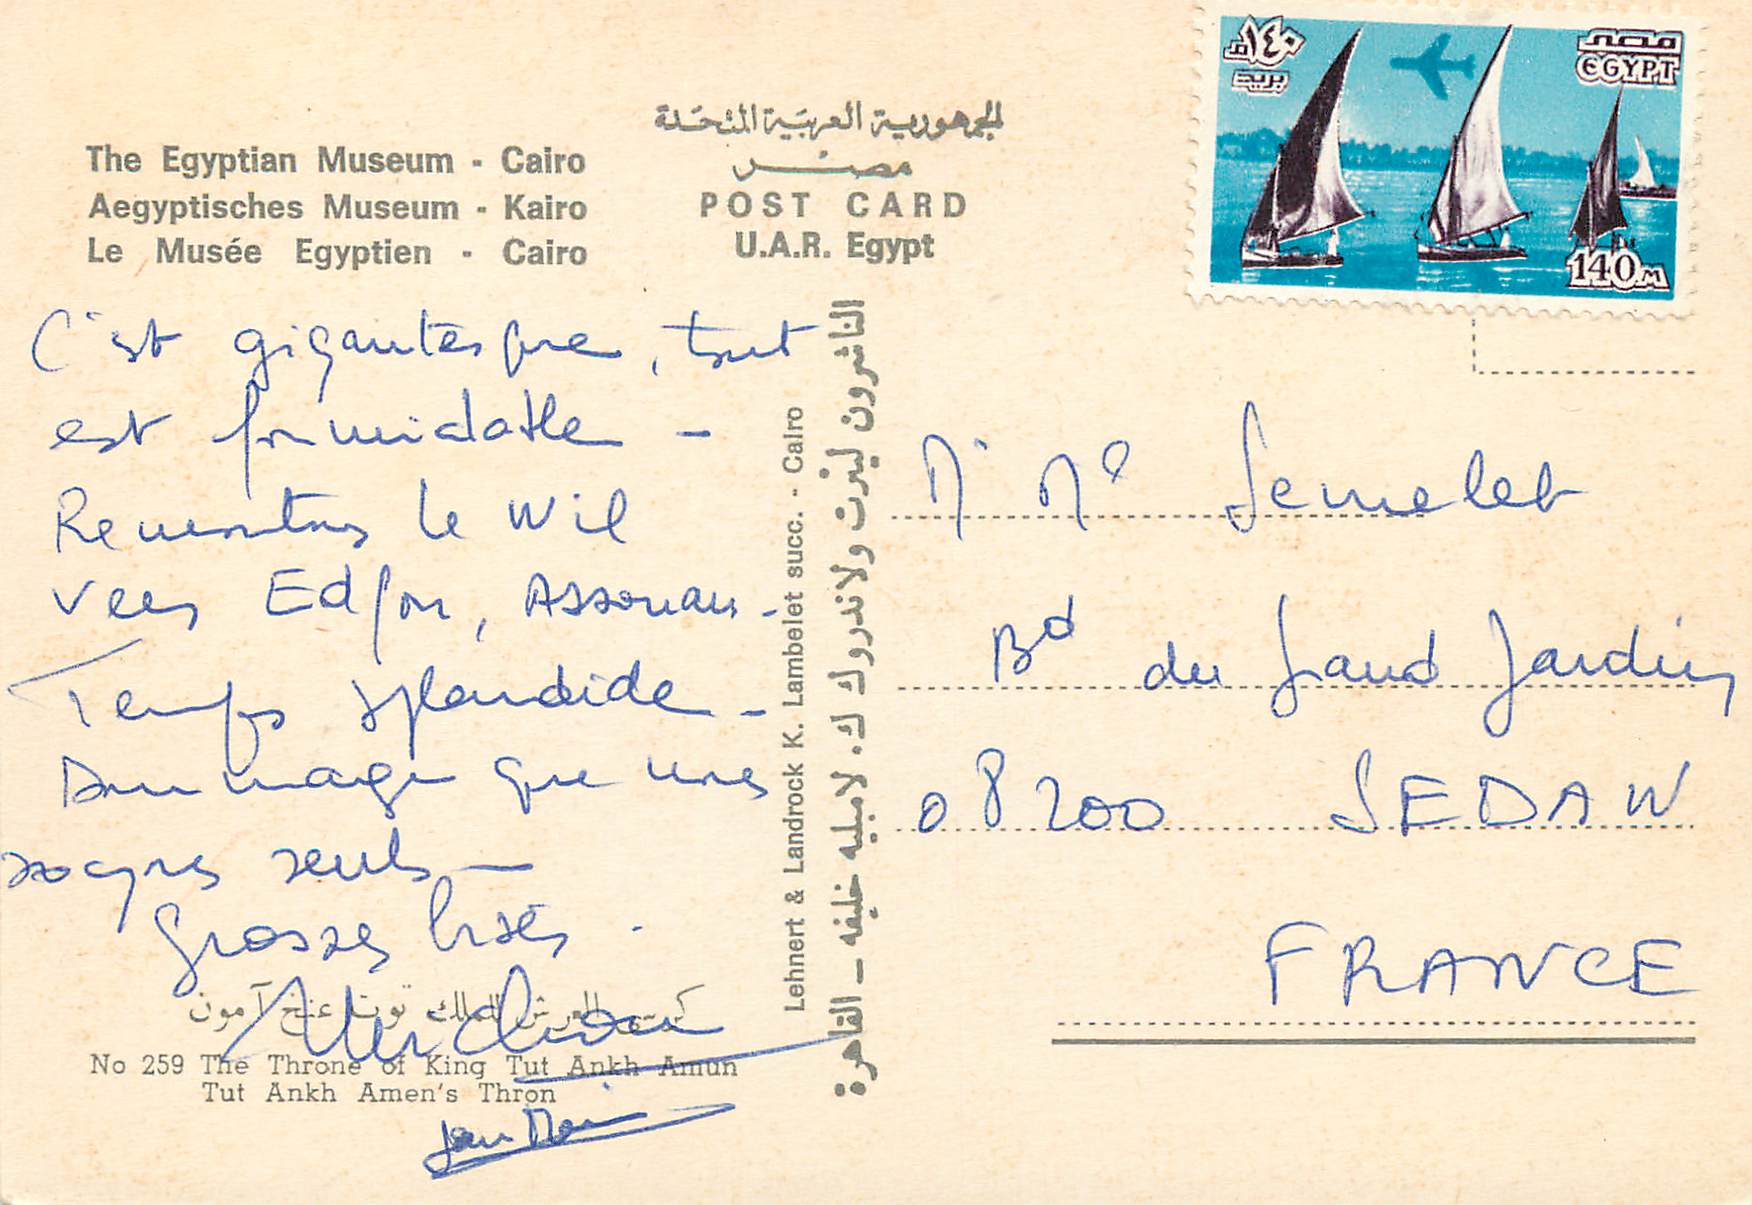 The Egyptian Museum - Cairo
Aegyptisches Museum - Kairo
Le Musée Egyptien - Cairo
الجمهورية العربية المتحدة
مصر
POST CARD
U.A.R. Egypt
١٤٠ م
بريد
مصر
EGYPT
140 M
C'est gigantesque, tout
est formidable -
Remontons le Nil
vers Edfou, Assouan -
Temps splendide -
Dommage que nous
soyons seuls -
Grosses bises.
كرسي العرش للملك توت عنخ آمون
No 259 The Throne of King Tut Ankh Amun
Tut Ankh Amen's Thron
Lehnert & Landrock K. Lambelet succ. - Cairo
الناشرون لينرت ولاندروك ك. لامبليه خليفه – القاهرة
Mr Me Semelet
Bd du Grand Jardin
08200 SEDAN
FRANCE